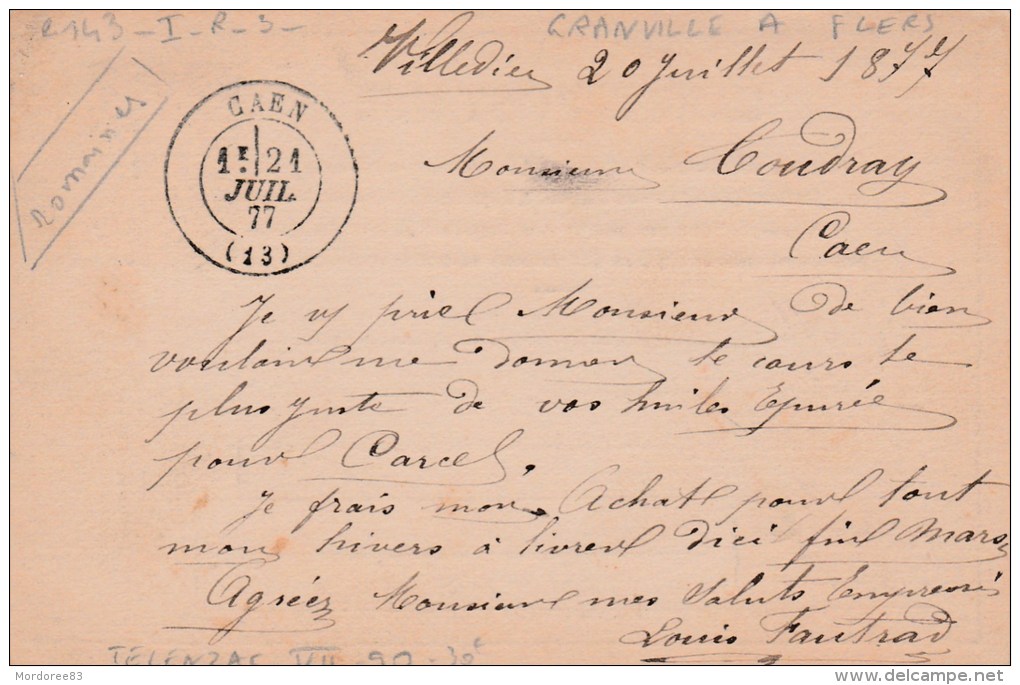 R143 - I - R - 3 -
GRANVILLE A FLERS
Villedieu 20 juillet 1877
CAEN
1E 21
JUIL.
77
(13)
Monsieur Coudray
Caen
Je vs prie Monsieur de bien
vouloir me donner le cours le
plus juste de vos huiles Epurée
pour Carcel.
Je frais mon Achat pour tout
mon hivers à livrer dici fin Mars
Agréez Monsieur mes Saluts Empressés
Louis Fautrad
VII - 90 - 30e
Mordoree83
delcampe.net